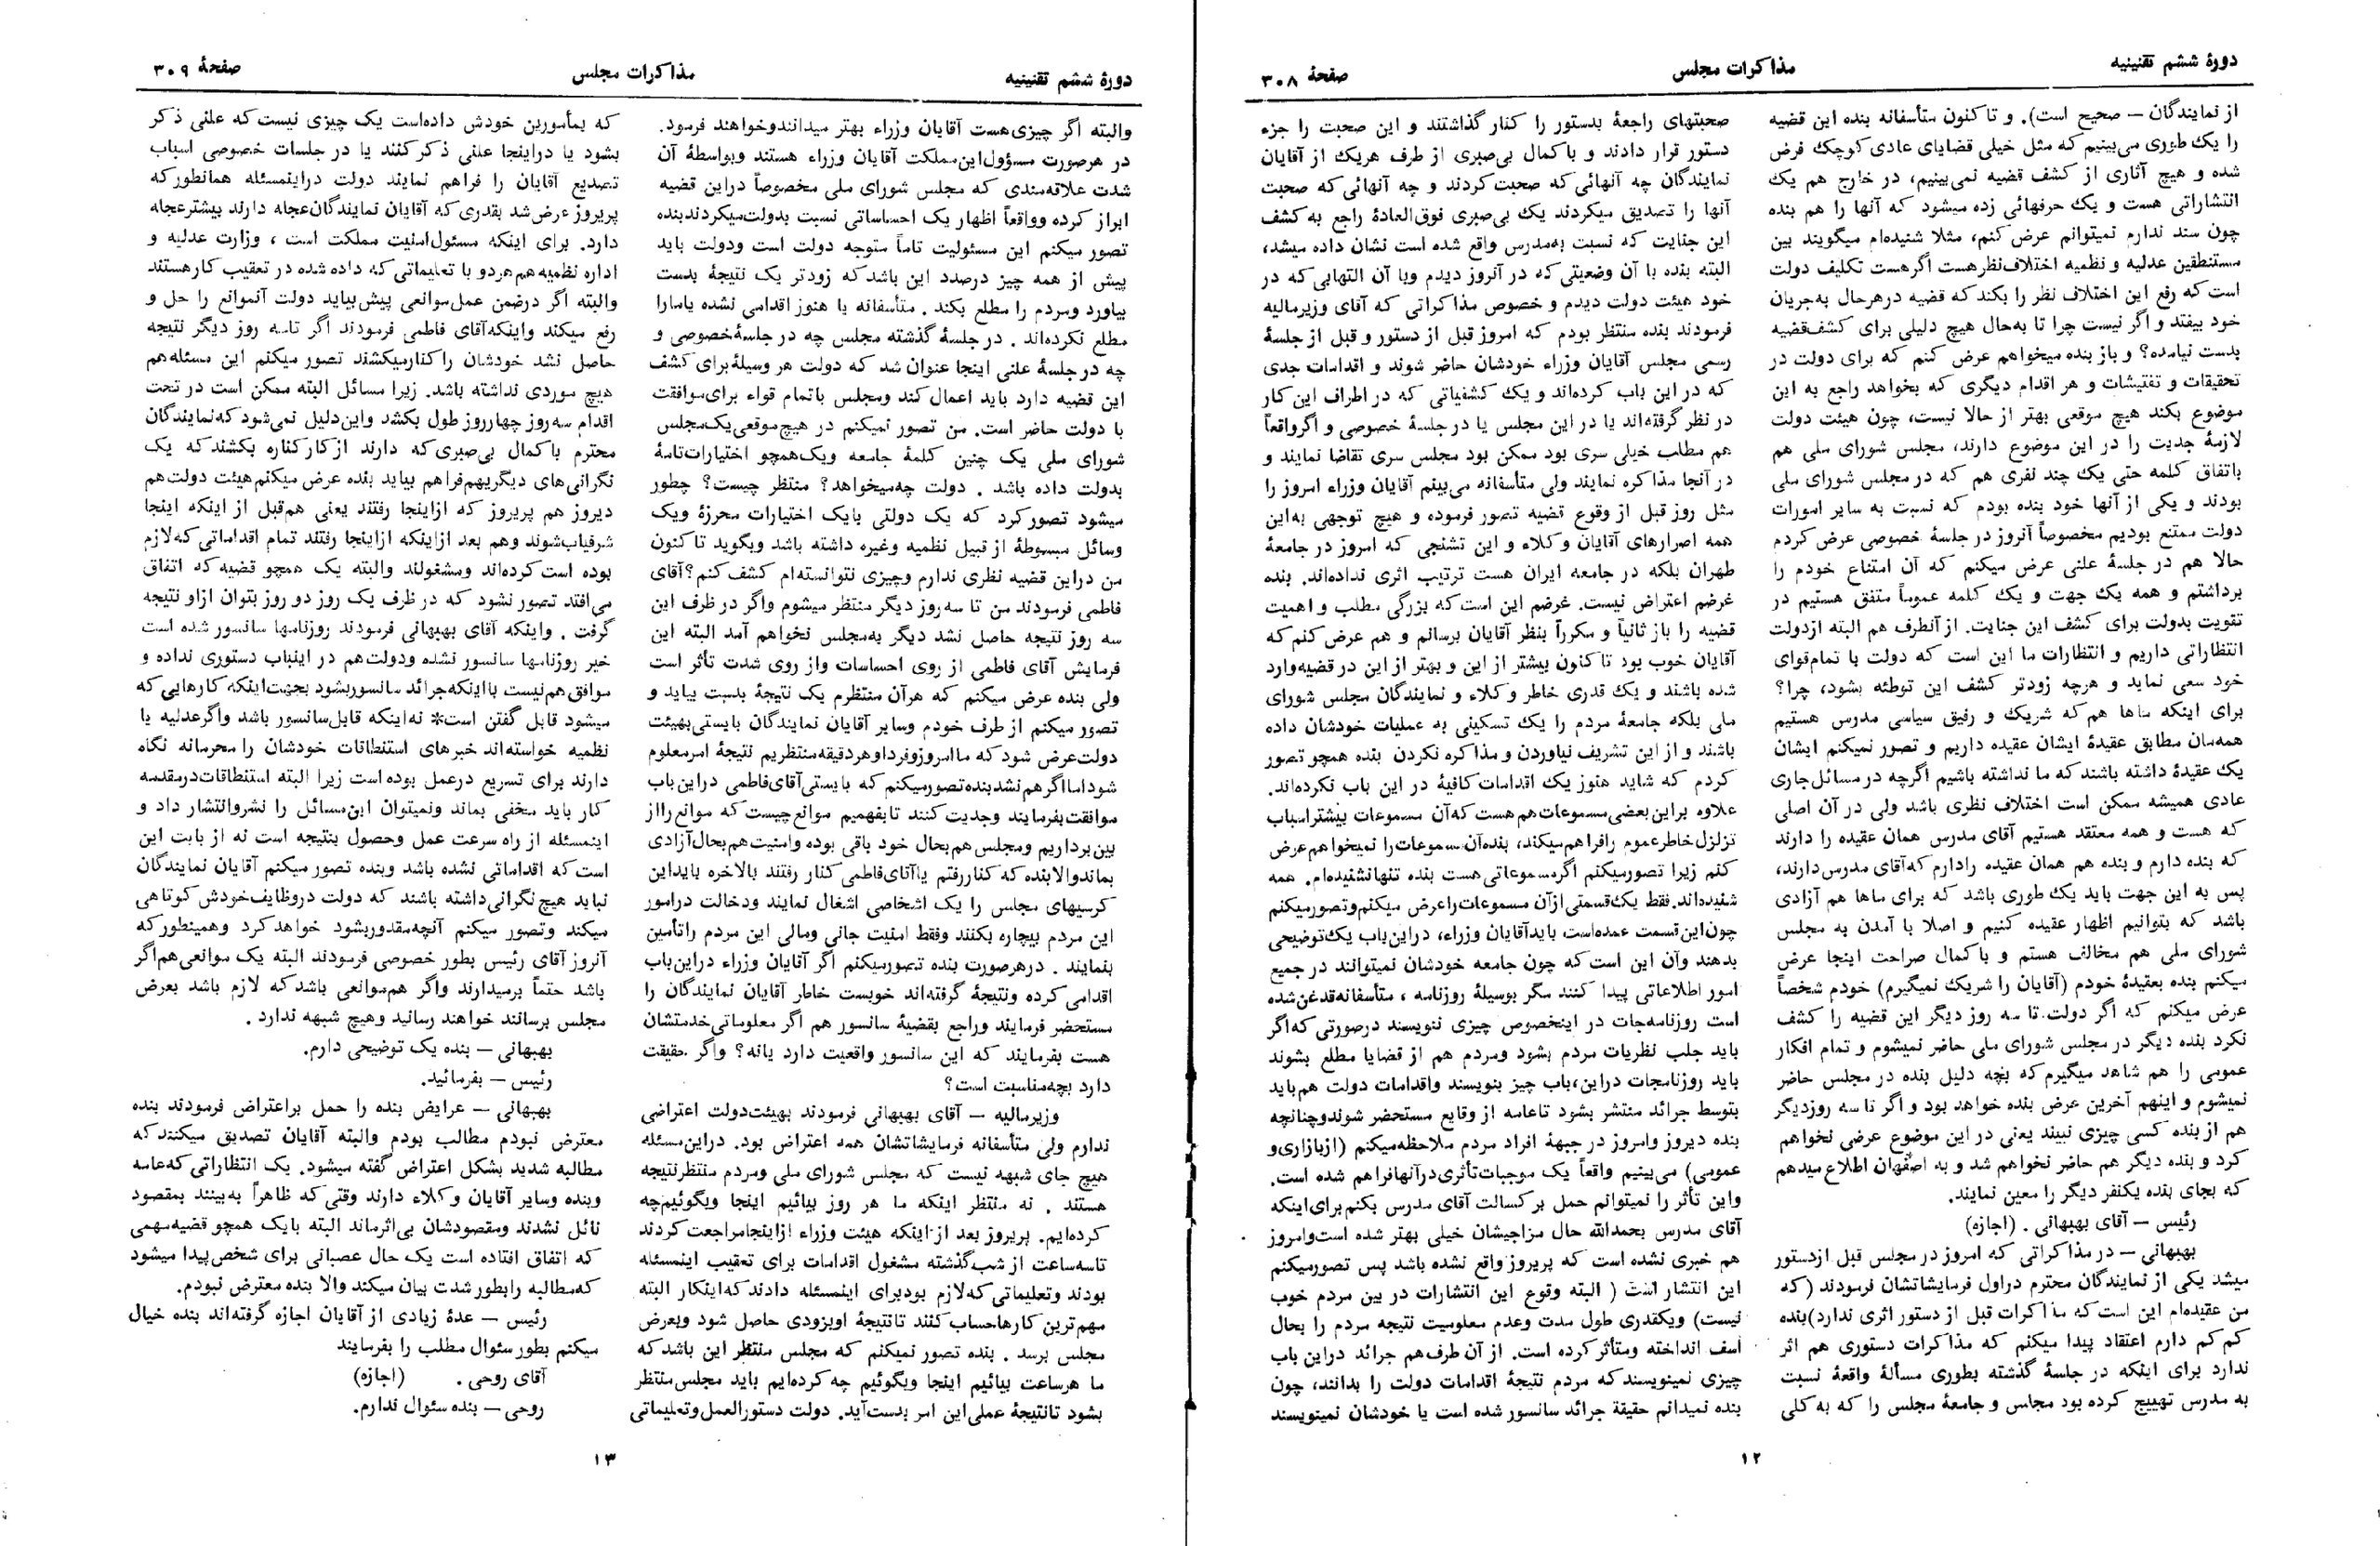 دورهٔ ششم تقنینیه
مذاکرات مجلس
صفحهٔ ۳۰۸
از نمایندگان — صحیح است). و تاکنون متأسفانه بنده این قضیه
را یک طوری می‌بینیم که مثل خیلی قضایای عادی کوچک فرض
شده و هیچ آثاری از کشف قضیه نمی‌بینیم، در خارج هم یک
انتشاراتی هست و یک حرفهائی زده میشود که آنها را هم بنده
چون سند ندارم نمیتوانم عرض کنم، مثلا شنیده‌ام میگویند بین
مستنطقین عدلیه و نظمیه اختلاف‌نظر هست اگر هست تکلیف دولت
است که رفع این اختلاف نظر را بکند که قضیه در هر حال به‌جریان
خود بیفتد و اگر نیست چرا تا به‌حال هیچ دلیلی برای کشف‌قضیه
بدست نیامده؟ و باز بنده میخواهم عرض کنم که برای دولت در
تحقیقات و تفتیشات و هر اقدام دیگری که بخواهد راجع به این
موضوع بکند هیچ موقعی بهتر از حالا نیست، چون هیئت دولت
لازمهٔ جدیت را در این موضوع دارند، مجلس شورای ملی هم
باتفاق کلمه حتی یک چند نفری هم که در مجلس شورای ملی
بودند و یکی از آنها خود بنده بودم که نسبت به سایر امورات
دولت ممتنع بودیم مخصوصاً آنروز در جلسهٔ خصوصی عرض کردم
حالا هم در جلسهٔ علنی عرض میکنم که آن امتناع خودم را
برداشتم و همه یک جهت و یک کلمه عموماً متفق هستیم در
تقویت بدولت برای کشف این جنایت. از آنطرف هم البته ازدولت
انتظاراتی داریم و انتظارات ما این است که دولت با تمام‌قوای
خود سعی نماید و هرچه زودتر کشف این توطئه بشود، چرا؟
برای اینکه ماها هم که شریک و رفیق سیاسی مدرس هستیم
همه‌مان مطابق عقیدهٔ ایشان عقیده داریم و تصور نمیکنم ایشان
یک عقیدهٔ داشته باشند که ما نداشته باشیم اگرچه در مسائل جاری
عادی همیشه ممکن است اختلاف نظری باشد ولی در آن اصلی
که هست و همه معتقد هستیم آقای مدرس همان عقیده را دارند
که بنده دارم و بنده هم همان عقیده رادارم که‌آقای مدرس دارند،
پس به این جهت باید یک طوری باشد که برای ماها هم آزادی
باشد که بتوانیم اظهار عقیده کنیم و اصلا با آمدن به مجلس
شورای ملی هم مخالف هستم و باکمال صراحت اینجا عرض
میکنم بنده بعقیدهٔ خودم (آقایان را شریک نمیگیرم) خودم شخصاً
عرض میکنم که اگر دولت تا سه روز دیگر این قضیه را کشف
نکرد بنده دیگر در مجلس شورای ملی حاضر نمیشوم و تمام افکار
عمومی را هم شاهد میگیرم که بچه دلیل بنده در مجلس حاضر
نمیشوم و اینهم آخرین عرض بنده خواهد بود و اگر تا سه روزدیگر
هم از بنده کسی چیزی نبیند یعنی در این موضوع عرضی نخواهم
کرد و بنده دیگر هم حاضر نخواهم شد و به اصفهان اطلاع میدهم
که بجای بنده یکنفر دیگر را معین نمایند.
رئیس — آقای بهبهانی . (اجازه)
بهبهانی — در مذاکراتی که امروز در مجلس قبل ازدستور
میشد یکی از نمایندگان محترم دراول فرمایشاتشان فرمودند (که
من عقیده‌ام این است که مذاکرات قبل از دستور اثری ندارد)بنده
کم کم دارم اعتقاد پیدا میکنم که مذاکرات دستوری هم اثر
ندارد برای اینکه در جلسهٔ گذشته بطوری مسألهٔ واقعهٔ نسبت
به مدرس تهییج کرده بود مجلس و جامعهٔ مجلس را که به کلی
صحبتهای راجعهٔ بدستور را کنار گذاشتند و این صحبت را جزء
دستور قرار دادند و باکمال بی‌صبری از طرف هریک از آقایان
نمایندگان چه آنهائی که صحبت کردند و چه آنهائی که صحبت
آنها را تصدیق میکردند یک بی‌صبری فوق‌العادهٔ راجع به کشف
این جنایت که نسبت به‌مدرس واقع شده است نشان داده میشد،
البته بنده با آن وضعیتی‌که در آنروز دیدم وبا آن التهابی که در
خود هیئت دولت دیدم و خصوص مذاکراتی که آقای وزیرمالیه
فرمودند بنده منتظر بودم که امروز قبل از دستور و قبل از جلسهٔ
رسمی مجلس آقایان وزراء خودشان حاضر شوند و اقدامات جدی
که در این باب کرده‌اند و یک کشفیاتی که در اطراف این کار
در نظر گرفته‌اند یا در این مجلس یا در جلسهٔ خصوصی و اگرواقعاً
هم مطلب خیلی سری بود ممکن بود مجلس سری تقاضا نمایند و
در آنجا مذاکره نمایند ولی متأسفانه می‌بینم آقایان وزراء امروز را
مثل روز قبل از وقوع قضیه تصور فرموده و هیچ توجهی به‌این
همه اصرارهای آقایان وکلاء و این تشنجی که امروز در جامعهٔ
طهران بلکه در جامعه ایران هست ترتیب اثری نداده‌اند. بنده
غرضم اعتراض نیست. غرضم این است‌که بزرگی مطلب و اهمیت
قضیه را باز ثانیاً و مکرراً بنظر آقایان برسانم و هم عرض کنم‌که
آقایان خوب بود تاکنون بیشتر از این و بهتر از این در قضیه‌وارد
شده باشند و یک قدری خاطر وکلاء و نمایندگان مجلس شورای
ملی بلکه جامعهٔ مردم را یک تسکینی به عملیات خودشان داده
باشند و از این تشریف نیاوردن و مذاکره نکردن بنده همچو تصور
کردم که شاید هنوز یک اقدامات کافیهٔ در این باب نکرده‌اند.
علاوه براین بعضی مسموعات هم هست که‌آن مسموعات بیشتراسباب
تزلزل خاطر عموم رافراهم میکند، بنده‌آن مسموعات را نمیخواهم عرض
کنم زیرا تصورمیکنم اگر مسموعاتی هست بنده تنها نشنیده‌ام. همه
شنیده‌اند. فقط یک قسمتی ازآن مسموعات راعرض میکنم وتصورمیکنم
چون این قسمت عمده‌است بایدآقایان وزراء، دراین باب یک توضیحی
بدهند وآن این است که چون جامعه خودشان نمیتوانند در جمیع
امور اطلاعاتی پیدا کنند مگر بوسیلهٔ روزنامه ، متأسفانه قدغن شده
است روزنامه‌جات در اینخصوص چیزی ننویسند درصورتی که اگر
باید جلب نظریات مردم بشود ومردم هم از قضایا مطلع بشوند
باید روزنامجات دراین‌باب چیز بنویسند واقدامات دولت هم باید
بتوسط جرائد منتشر بشود تاعامه از وقایع مستحضر شوندوچنانچه
بنده دیروز وامروز در جبههٔ افراد مردم ملاحظه‌میکنم (ازبازاری‌و
عمومی) می‌بینیم واقعاً یک موجبات تأثری درآنهافراهم شده است.
واین تأثر را نمیتوانم حمل بر کسالت آقای مدرس بکنم برای‌اینکه
آقای مدرس بحمدالله حال مزاجیشان خیلی بهتر شده است‌وامروز
هم خبری نشده است که پریروز واقع نشده باشد پس تصورمیکنم
این انتشار است ( البته وقوع این انتشارات در بین مردم خوب
نیست) ویکقدری طول مدت وعدم معلومیت نتیجه مردم را بحال
اسف انداخته ومتأثر کرده است. از آن طرف هم جرائد دراین باب
چیزی نمینویسند که مردم نتیجهٔ اقدامات دولت را بدانند، چون
بنده نمیدانم حقیقة جرائد سانسور شده است یا خودشان نمینویسند
۱۲
دورهٔ ششم تقنینیه
مذاکرات مجلس
صفحهٔ ۳۰۹
والبته اگر چیزی هست آقایان وزراء بهتر میدانندوخواهند فرمود.
در هرصورت مسؤول این مملکت آقایان وزراء هستند وبواسطهٔ آن
شدت علاقه‌مندی که مجلس شورای ملی مخصوصاً دراین قضیه
ابراز کرده وواقعاً اظهار یک احساساتی نسبت بدولت میکردندبنده
تصور میکنم این مسئولیت تاماً متوجه دولت است ودولت باید
پیش از همه چیز درصدد این باشد که زودتر یک نتیجهٔ بدست
بیاورد ومردم را مطلع بکند . متأسفانه یا هنوز اقدامی نشده یامارا
مطلع نکرده‌اند . در جلسهٔ گذشته مجلس چه در جلسهٔ خصوصی و
چه در جلسهٔ علنی اینجا عنوان شد که دولت هر وسیلهٔ برای کشف
این قضیه دارد باید اعمال کند ومجلس باتمام قواء برای موافقت
با دولت حاضر است. من تصور نمیکنم در هیچ موقعی یک‌مجلس
شورای ملی یک چنین کلمهٔ جامعه ویک همچو اختیارات‌تامهٔ
بدولت داده باشد . دولت چه‌میخواهد؟ منتظر چیست؟ چطور
میشود تصور کرد که یک دولتی بایک اختیارات محرزهٔ ویک
وسائل مبسوطهٔ از قبیل نظمیه وغیره داشته باشد وبگوید تاکنون
من دراین قضیه نظری ندارم وچیزی نتوانسته‌ام کشف کنم؟آقای
فاطمی فرمودند من تا سه روز دیگر منتظر میشوم واگر در ظرف این
سه روز نتیجه حاصل نشد دیگر به‌مجلس نخواهم آمد البته این
فرمایش آقای فاطمی از روی احساسات واز روی شدت تأثر است
ولی بنده عرض میکنم که هرآن منتظرم یک نتیجهٔ بدست بیاید و
تصور میکنم از طرف خودم وسایر آقایان نمایندگان بایستی‌بهیئت
دولت عرض شود که ما امروزوفرداوهردقیقه منتظریم نتیجهٔ امرمعلوم
شود امااگرهم نشدبنده تصورمیکنم که بایستی آقای فاطمی دراین باب
موافقت بفرمایند وجدیت کنند تابفهمیم موانع چیست که موانع رااز
بین برداریم ومجلس هم بحال خود باقی بوده وامنیت هم بحال‌آزادی
بماندوالابنده که کناررفتم یاآقای فاطمی کنار رفتند بالاخره بایداین
کرسیهای مجلس را یک اشخاصی اشغال نمایند ودخالت درامور
این مردم بیچاره بکنند وفقط امنیت جانی ومالی این مردم راتأمین
بنمایند . درهرصورت بنده تصورمیکنم اگر آقایان وزراء دراین باب
اقدامی کرده ونتیجهٔ گرفته‌اند خوبست خاطر آقایان نمایندگان را
مستحضر فرمایند وراجع بقضیهٔ سانسور هم اگر معلوماتی خدمتشان
هست بفرمایند که این سانسور واقعیت دارد یانه؟ واگر حقیقت
دارد بچه‌مناسبت است؟
وزیرمالیه — آقای بهبهانی فرمودند بهیئت دولت اعتراضی
ندارم ولی متأسفانه فرمایشاتشان همه اعتراض بود. دراین مسئله
هیچ جای شبهه نیست که مجلس شورای ملی ومردم منتظرنتیجه
هستند . نه منتظر اینکه ما هر روز بیائیم اینجا وبگوئیم‌چه
کرده‌ایم. پریروز بعد از اینکه هیئت وزراء ازاینجامراجعت کردند
تاسه‌ساعت از شب گذشته مشغول اقدامات برای تعقیب اینمسئله
بودند وتعلیماتی که لازم بودبرای اینمسئله دادند که‌اینکار البته
مهم‌ترین کارهاحساب کنند تانتیجهٔ اوبزودی حاصل شود وبعرض
مجلس برسد . بنده تصور نمیکنم که مجلس منتظر این باشد که
ما هرساعت بیائیم اینجا وبگوئیم چه کرده‌ایم باید مجلس منتظر
بشود تانتیجهٔ عملی‌این امر بدست‌آید. دولت دستورالعمل وتعلیماتی
که بمأمورین خودش داده‌است یک چیزی نیست که علنی ذکر
بشود یا دراینجا علنی ذکر کنند یا در جلسات خصوصی اسباب
تصدیع آقایان را فراهم نمایند دولت دراینمسئله همانطور که
پریروز عرض شد بقدری که آقایان نمایندگان عجله دارند بیشترعجله
دارد. برای اینکه مسئول امنیت مملکت است ، وزارت عدلیه و
اداره نظمیه هم هردو با تعلیماتی که داده شده در تعقیب کارهستند
والبته اگر درضمن عمل موانعی پیش بیاید دولت آنموانع را حل و
رفع میکند واینکه آقای فاطمی فرمودند اگر تاسه روز دیگر نتیجه
حاصل نشد خودشان را کنارمیکشند تصور میکنم این مسئله هم
هیچ موردی نداشته باشد. زیرا مسائل البته ممکن است در تحت
اقدام سه روز چهارروز طول بکشد واین دلیل نمی‌شود که نمایندگان
محترم باکمال بی‌صبری که دارند از کار کناره بکشند که یک
نگرانی‌های دیگریهم فراهم بیاید بنده عرض میکنم هیئت دولت هم
دیروز هم پریروز که ازاینجا رفتند یعنی هم قبل از اینکه اینجا
شرفیاب‌شوند وهم بعد ازاینکه ازاینجا رفتند تمام اقداماتی که لازم
بوده است کرده‌اند ومشغولند والبته یک همچو قضیه که اتفاق
می‌افتد تصور نشود که در ظرف یک روز دو روز بتوان ازاو نتیجه
گرفت . واینکه آقای بهبهانی فرمودند روزنامها سانسور شده است
خیر روزنامها سانسور نشده ودولت هم در اینباب دستوری نداده و
موافق هم نیست بااینکه جرائد سانسور بشود بجهت اینکه کارهایی که
میشود قابل گفتن است* نه اینکه قابل سانسور باشد واگرعدلیه یا
نظمیه خواسته‌اند خبرهای استنطاقات خودشان را محرمانه نگاه
دارند برای تسریع درعمل بوده است زیرا البته استنطاقات درمقدمه
کار باید مخفی بماند ونمیتوان این مسائل را نشروانتشار داد و
اینمسئله از راه سرعت عمل وحصول بنتیجه است نه از بابت این
است که اقداماتی نشده باشد وبنده تصور میکنم آقایان نمایندگان
نباید هیچ نگرانی داشته باشند که دولت دروظایف خودش کوتاهی
میکند وتصور میکنم آنچه مقدوربشود خواهد کرد وهمینطور که
آنروز آقای رئیس بطور خصوصی فرمودند البته یک موانعی هم اگر
باشد حتماً برمیدارند واگر هم موانعی باشد که لازم باشد بعرض
مجلس برسانند خواهند رسانید وهیچ شبهه ندارد .
بهبهانی — بنده یک توضیحی دارم.
رئیس — بفرمائید.
بهبهانی — عرایض بنده را حمل براعتراض فرمودند بنده
معترض نبودم مطالب بودم والبته آقایان تصدیق میکنند که
مطالبه شدید بشکل اعتراض گفته میشود. یک انتظاراتی که عامه
وبنده وسایر آقایان وکلاء دارند وقتی که ظاهراً به‌بینند بمقصود
نائل نشدند ومقصودشان بی‌اثرماند البته بایک همچو قضیه مهمی
که اتفاق افتاده است یک حال عصبانی برای شخص پیدا میشود
که مطالبه رابطور شدت بیان میکند والا بنده معترض نبودم.
رئیس — عدهٔ زیادی از آقایان اجازه گرفته‌اند بنده خیال
میکنم بطور سئوال مطلب را بفرمایند
آقای روحی . (اجازه)
روحی — بنده سئوال ندارم.
۱۳